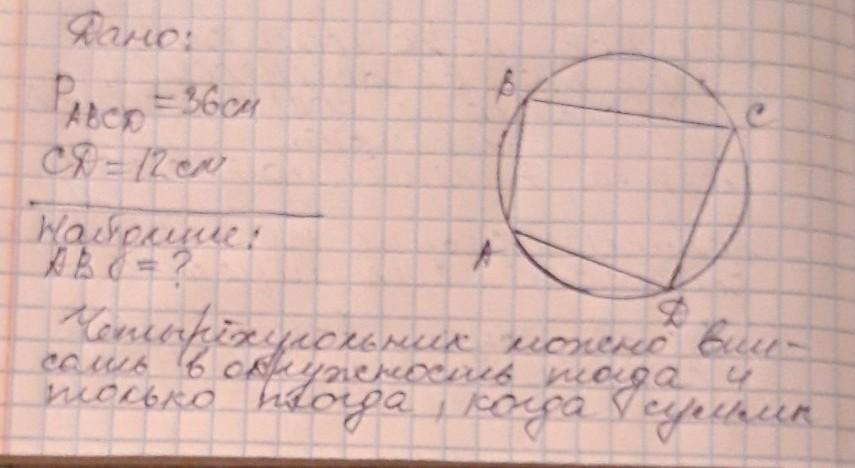 Дано:
P ABCD = 36 см
CD = 12 см
Найдите:
AB = ?
B
C
A
D
Четырёхугольник можно впи-
сать в окружность тогда и
только тогда, когда суммы